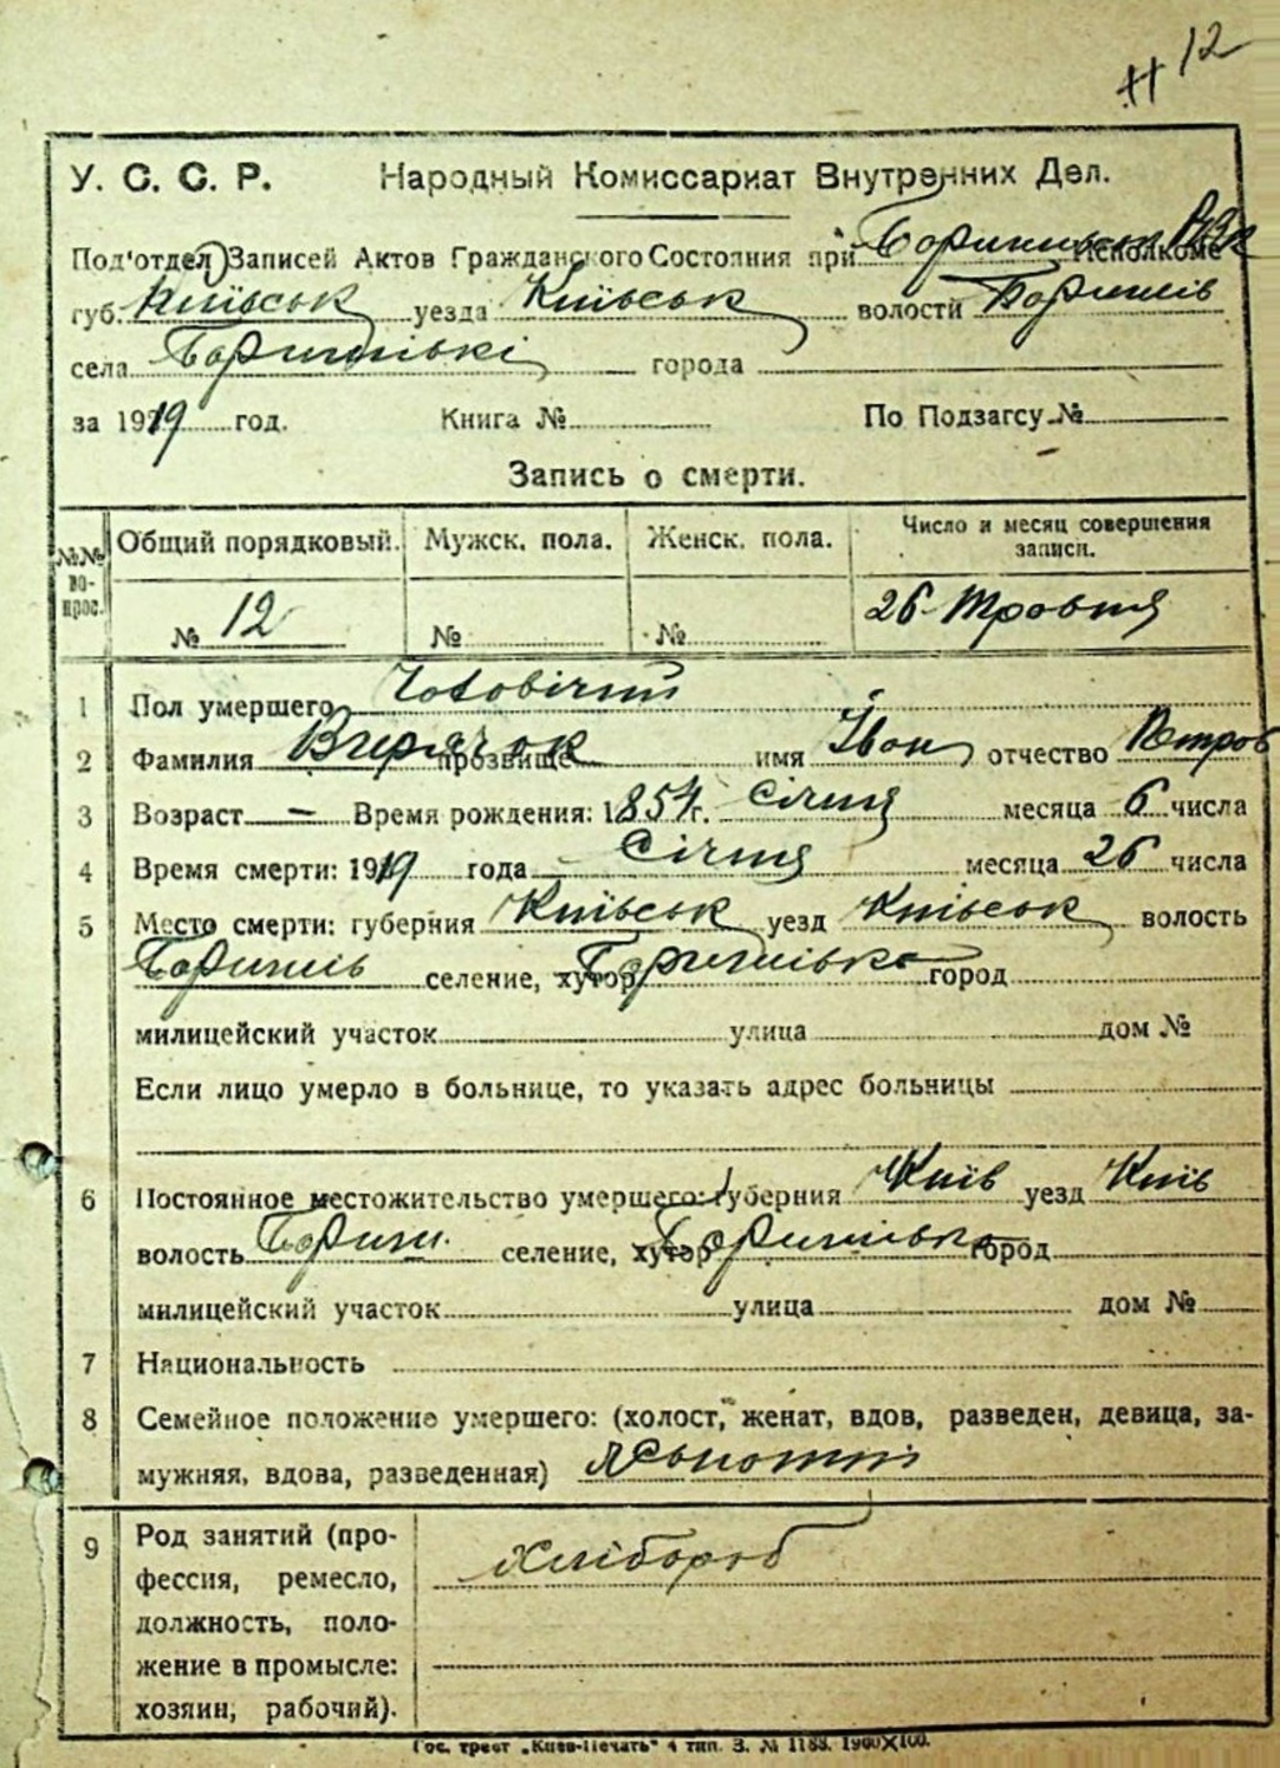 12
У. С. С. Р. Народный Комиссариат Внутренних Дел.
Под'отдел Записей Актов Гражданского Состояния при Исполкоме
губ. Київськ уезда Київськ волости Баришів
села Баришівкі города
за 1919 год. Книга № По Подзагсу №
Запись о смерти.
№№ вопрос. Общий порядковый. Мужск. пола. Женск. пола. Число и месяц совершения записи.
№ 12 № № 26 Травня
1 Пол умершего Чоловічий
2 Фамилия прозвище имя Іван отчество Петров
3 Возраст — Время рождения: 1854 г. Січня месяца 6 числа
4 Время смерти: 1919 года Січня месяца 26 числа
5 Место смерти: губерния Київськ уезд Київськ волость
Баришів селение, хутор Баришівка город
милицейский участок улица дом №
Если лицо умерло в больнице, то указать адрес больницы
6 Постоянное местожительство умершего: губерния Київ уезд Київ
волость Бариш. селение, хутор Баришівка город
милицейский участок улица дом №
7 Национальность
8 Семейное положение умершего: (холост, женат, вдов, разведен, девица, за-
мужняя, вдова, разведенная)
9 Род занятий (про- хлібороб
фессия, ремесло,
должность, поло-
жение в промысле:
хозяин, рабочий).
Гос. трест „Киев-Печать" 4 тип. З. № 1188. 1900X100.